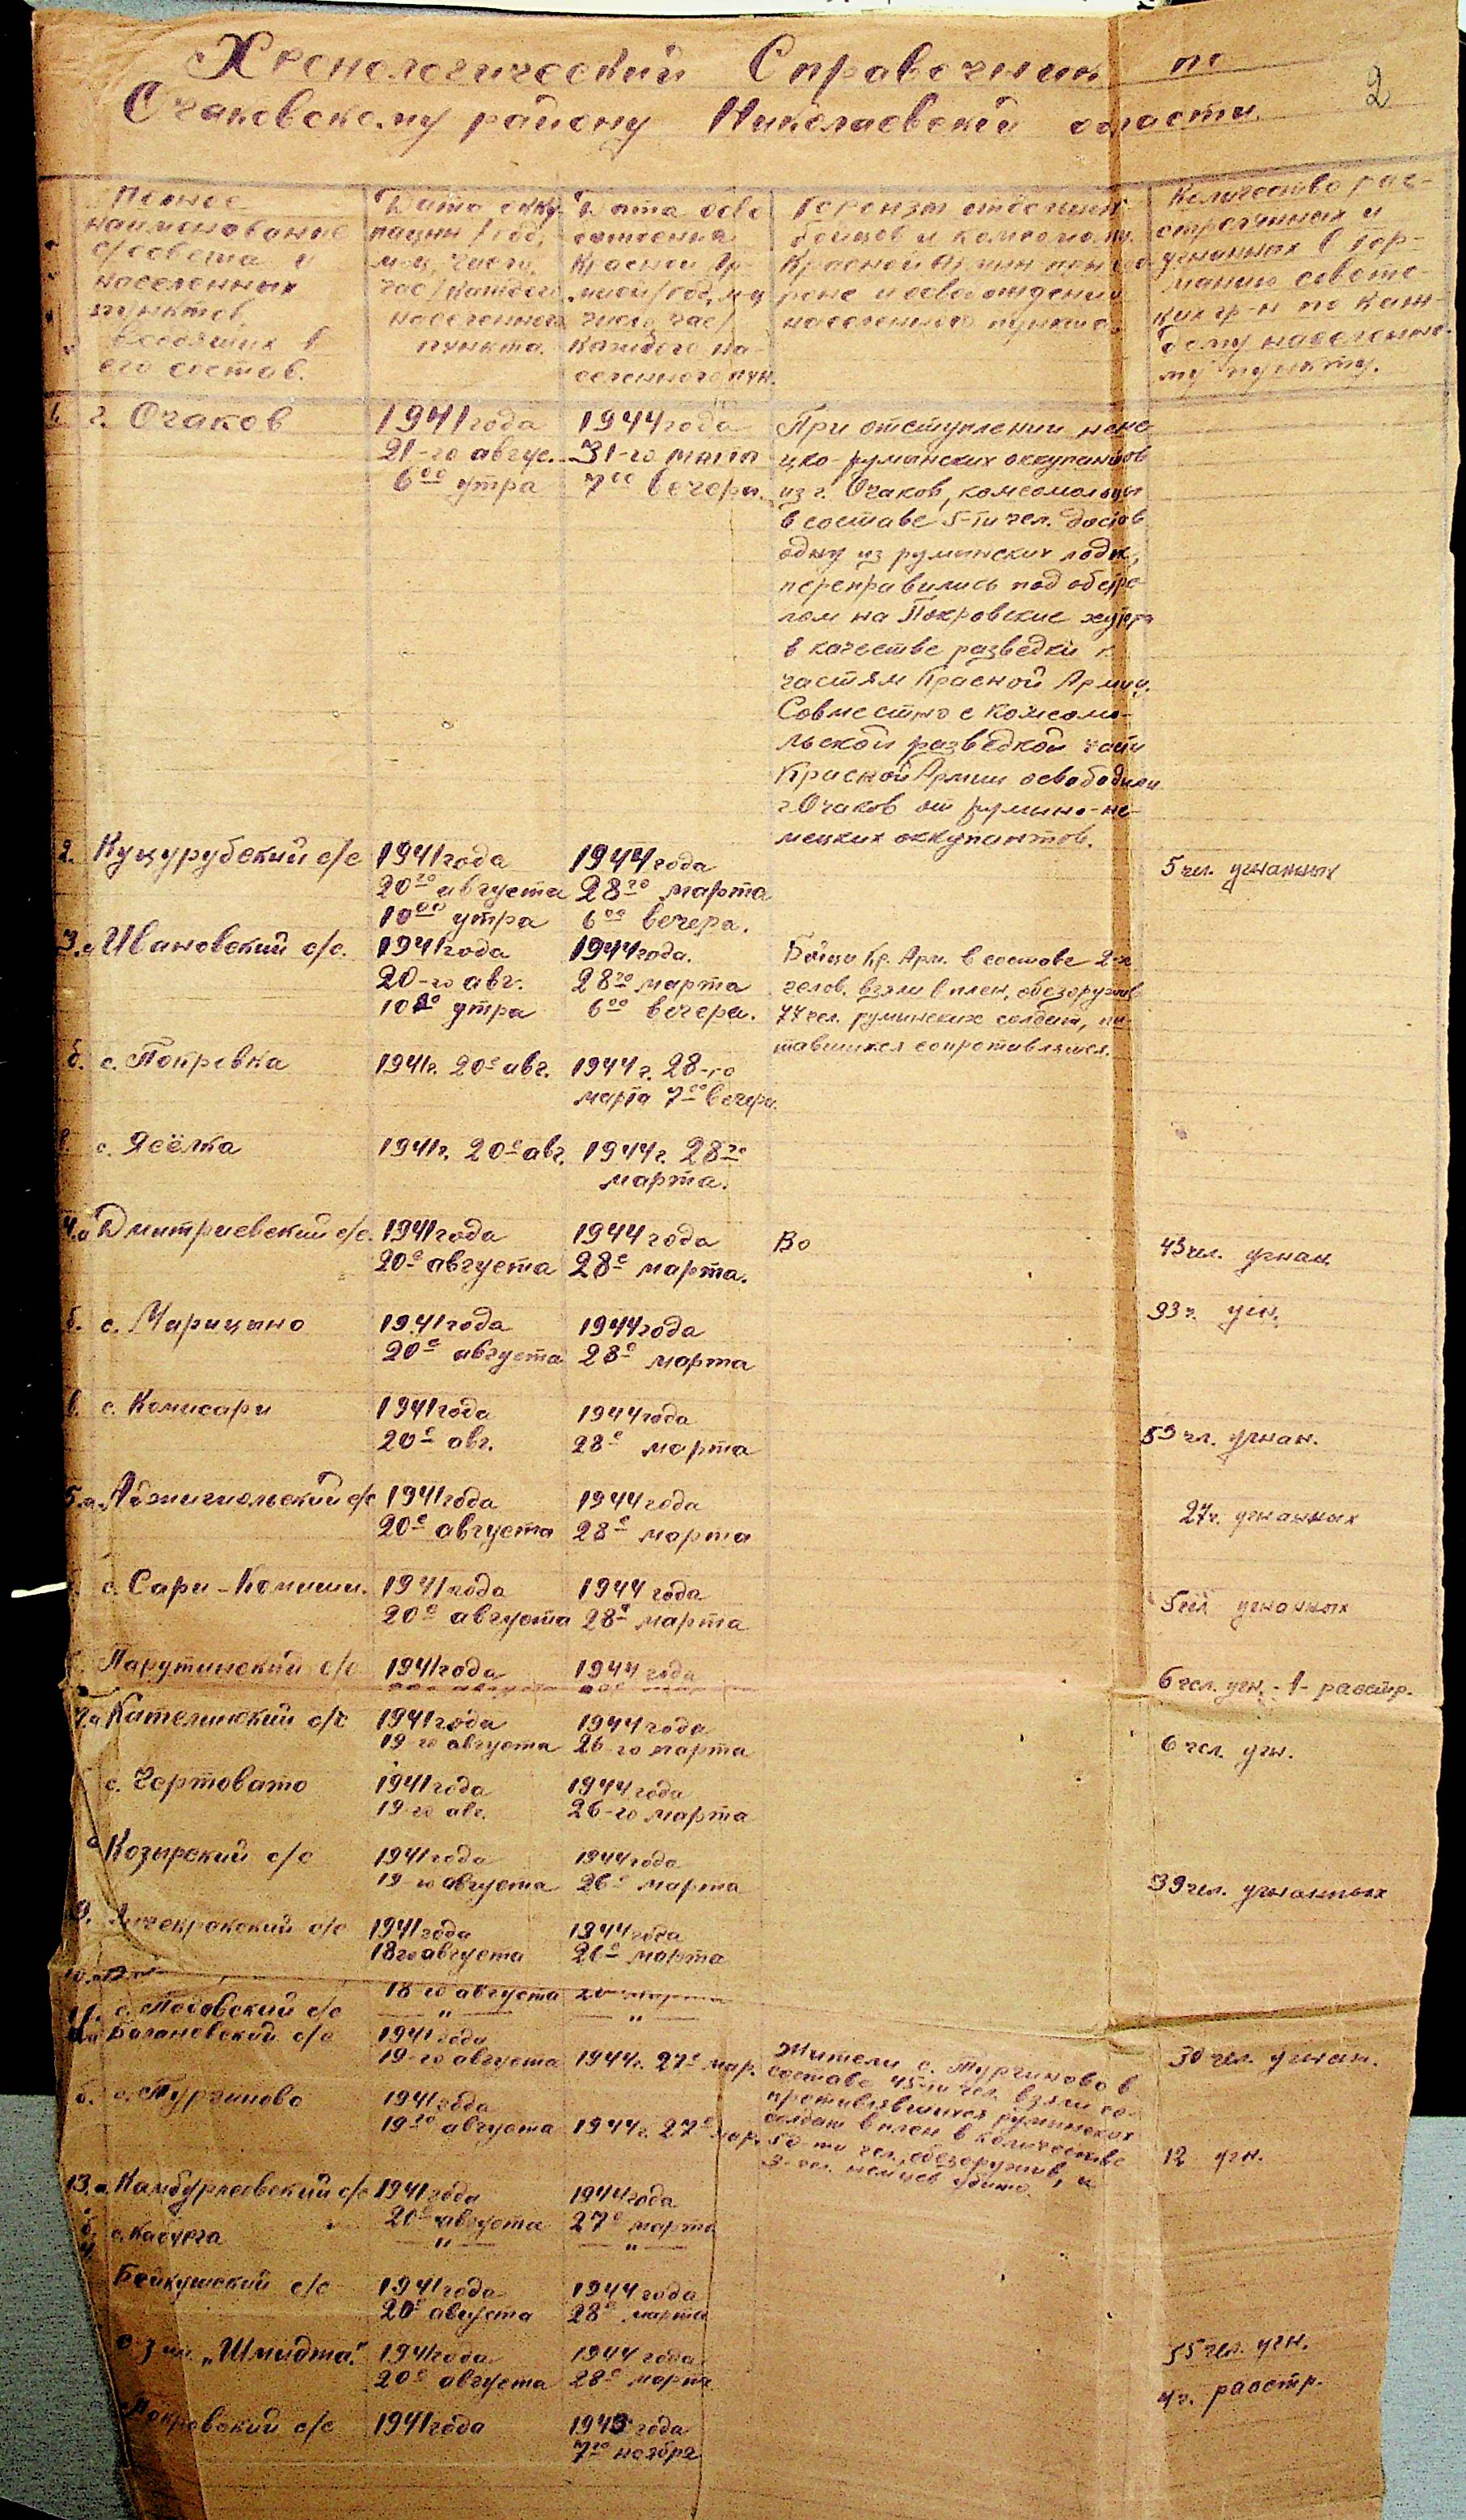 Хронологический Справочник по
Очаковскому району Николаевской области.
2
Полное
наименование
с/совета и
населенных
пунктов,
входящих в
его состав.
Дата окку-
пации /год,
м-ц, число,
час/ каждого
населенного
пункта.
Дата осво
бождения
Красной Ар-
мией /год, м-ц
число, час/
каждого на-
селенного пун.
Героизм отдельных
бойцов и командиров
Красной Армии при обо
роне и освобождении
населенного пункта.
Количество рас-
стрелянных и
угнанных в Гер-
манию советс-
ких гр-н по каж-
дому населенно-
му пункту.
1. г. Очаков
1941 года
21-го авгус.
6⁰⁰ утра
1944 года
31-го марта
7⁰⁰ вечера.
При отступлении неме
цко-румынских оккупантов
из г. Очаков, комсомольцы
в составе 5-ти чел. достав
одну из румынских лодок,
переправились под обстре-
лом на Покровские хутора
в качестве разведки к
частям Красной Армии.
Совместно с комсомо-
льской разведкой части
Красной Армии освободили
г. Очаков от румыно-не-
мецких оккупантов.
2. Куцурубский с/с
1941 года
20го августа
10⁰⁰ утра
1944 года
28го марта
6⁰⁰ вечера.
5 чел. угнанных
3.а Ивановский с/с.
1941 года
20-го авг.
10⁰⁰ утра
1944 года.
28го марта
6⁰⁰ вечера.
Бойцы Кр. Арм. в составе 2-х
челов. взяли в плен, обезоружив
77 чел. румынских солдат, пы-
тавшихся сопротивляться.
б. с. Покровка
1941г. 20го авг.
1944 г. 28-го
марта 7⁰⁰ вечера.
в. с. Яселка
1941г. 20го авг.
1944 г. 28го
марта.
4.а Дмитриевский с/с.
1941 года
20го августа
1944 года
28го марта.
Во
43 чел. угнан
б. с. Марицыно
1941 года
20го августа
1944 года
28го марта
93 ч. угн.
в. с. Комисари
1941 года
20го авг.
1944 года
28го марта
59 чл. угнан.
5.а. Аджигиольский с/с
1941 года
20го августа
1944 года
28го марта
27 ч. угнанных
с. Сари-Комиши.
1941 года
20го августа
1944 года
28го марта
5 чел угнанных
Парутинский с/с
1941 года
1944 года
6 чел. угн. - 1 - расстр.
7.а Кателинский с/с
1941 года
19-го августа
1944 года
26-го марта
6 чел. угн.
с. Чертовато
1941 года
19-го авг.
1944 года
26-го марта
Козырский с/с
1941 года
19-го августа
1944 года
26го марта
39 чел. угнанных
9. Анчекракский с/с
1941 года
18го августа
1944 года
26го марта
10.
18го августа
11. с. Посадовский с/с
— " —
— " —
12.а Богановский с/с
1941 года
19-го августа
1944г. 27го мар.
Жители с. Турчиново в
составе 45-ти чел. взяли со-
противлявшихся румынских
солдат в плен в количестве
50-ти чел, обезоружив, и
3-чел. немцев убито.
30 чел. угнан.
б. с. Турчиново
1941 года
19го августа
1944г. 27го мар.
12 угн.
13.а Камбурлеевский с/с
1941 года
20го августа
1944 года
27го марта
б. с. Каборга
— " —
— " —
Бейкушский с/с
1941 года
20го августа
1944 года
28го марта
с-з им. „Шмидта."
1941 года
20го августа
1944 года
28го марта
55 чел. угн.
4 ч. расстр.
Покровский с/с
1941 года
1943 года
7го ноября